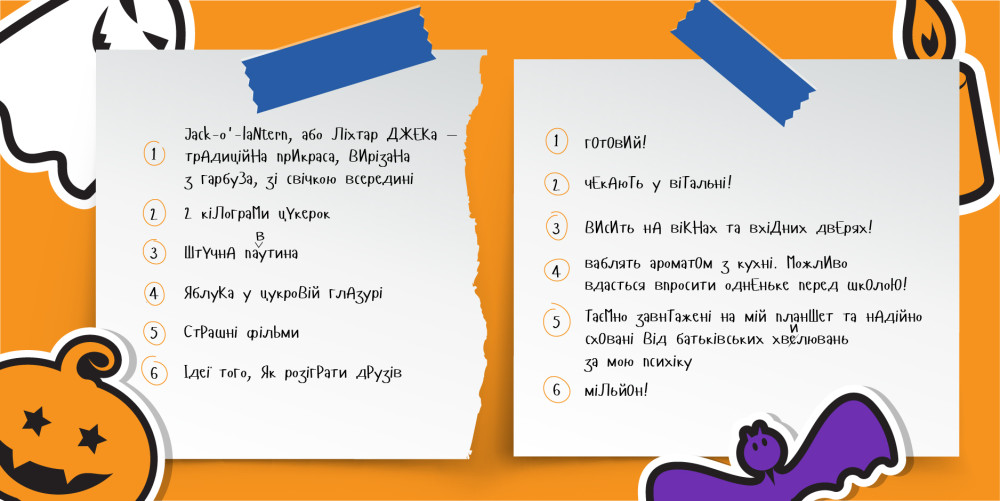 1 Jack-o'-laNtern, або ЛіхТар ДЖЕКа –
трАдиційНа прИкраса, ВИрізаНа
з гарбуЗа, зі свічкою всередині
2 2 кіЛограМи цУкерок
3 ШтУчнА павутина
4 ЯблуКа у цукроВій глАзурі
5 СтРашні фільми
6 Ідеї того, Як розігРати дРузів
1 гОтОвИй!
2 чЕкАюТь у віТальні!
3 ВИсИть нА віКНах та вхіДних двЕрях!
4 ваблять аромаТОм з кухні. МожлИво
вдасться впросити однЕньке перед шкОлоЮ!
5 ТаєМно завнТажені на мій планШет та нАдійно
схОвані Від батьківських хвелювань
и
за мою психіку
6 міЛьйОн!